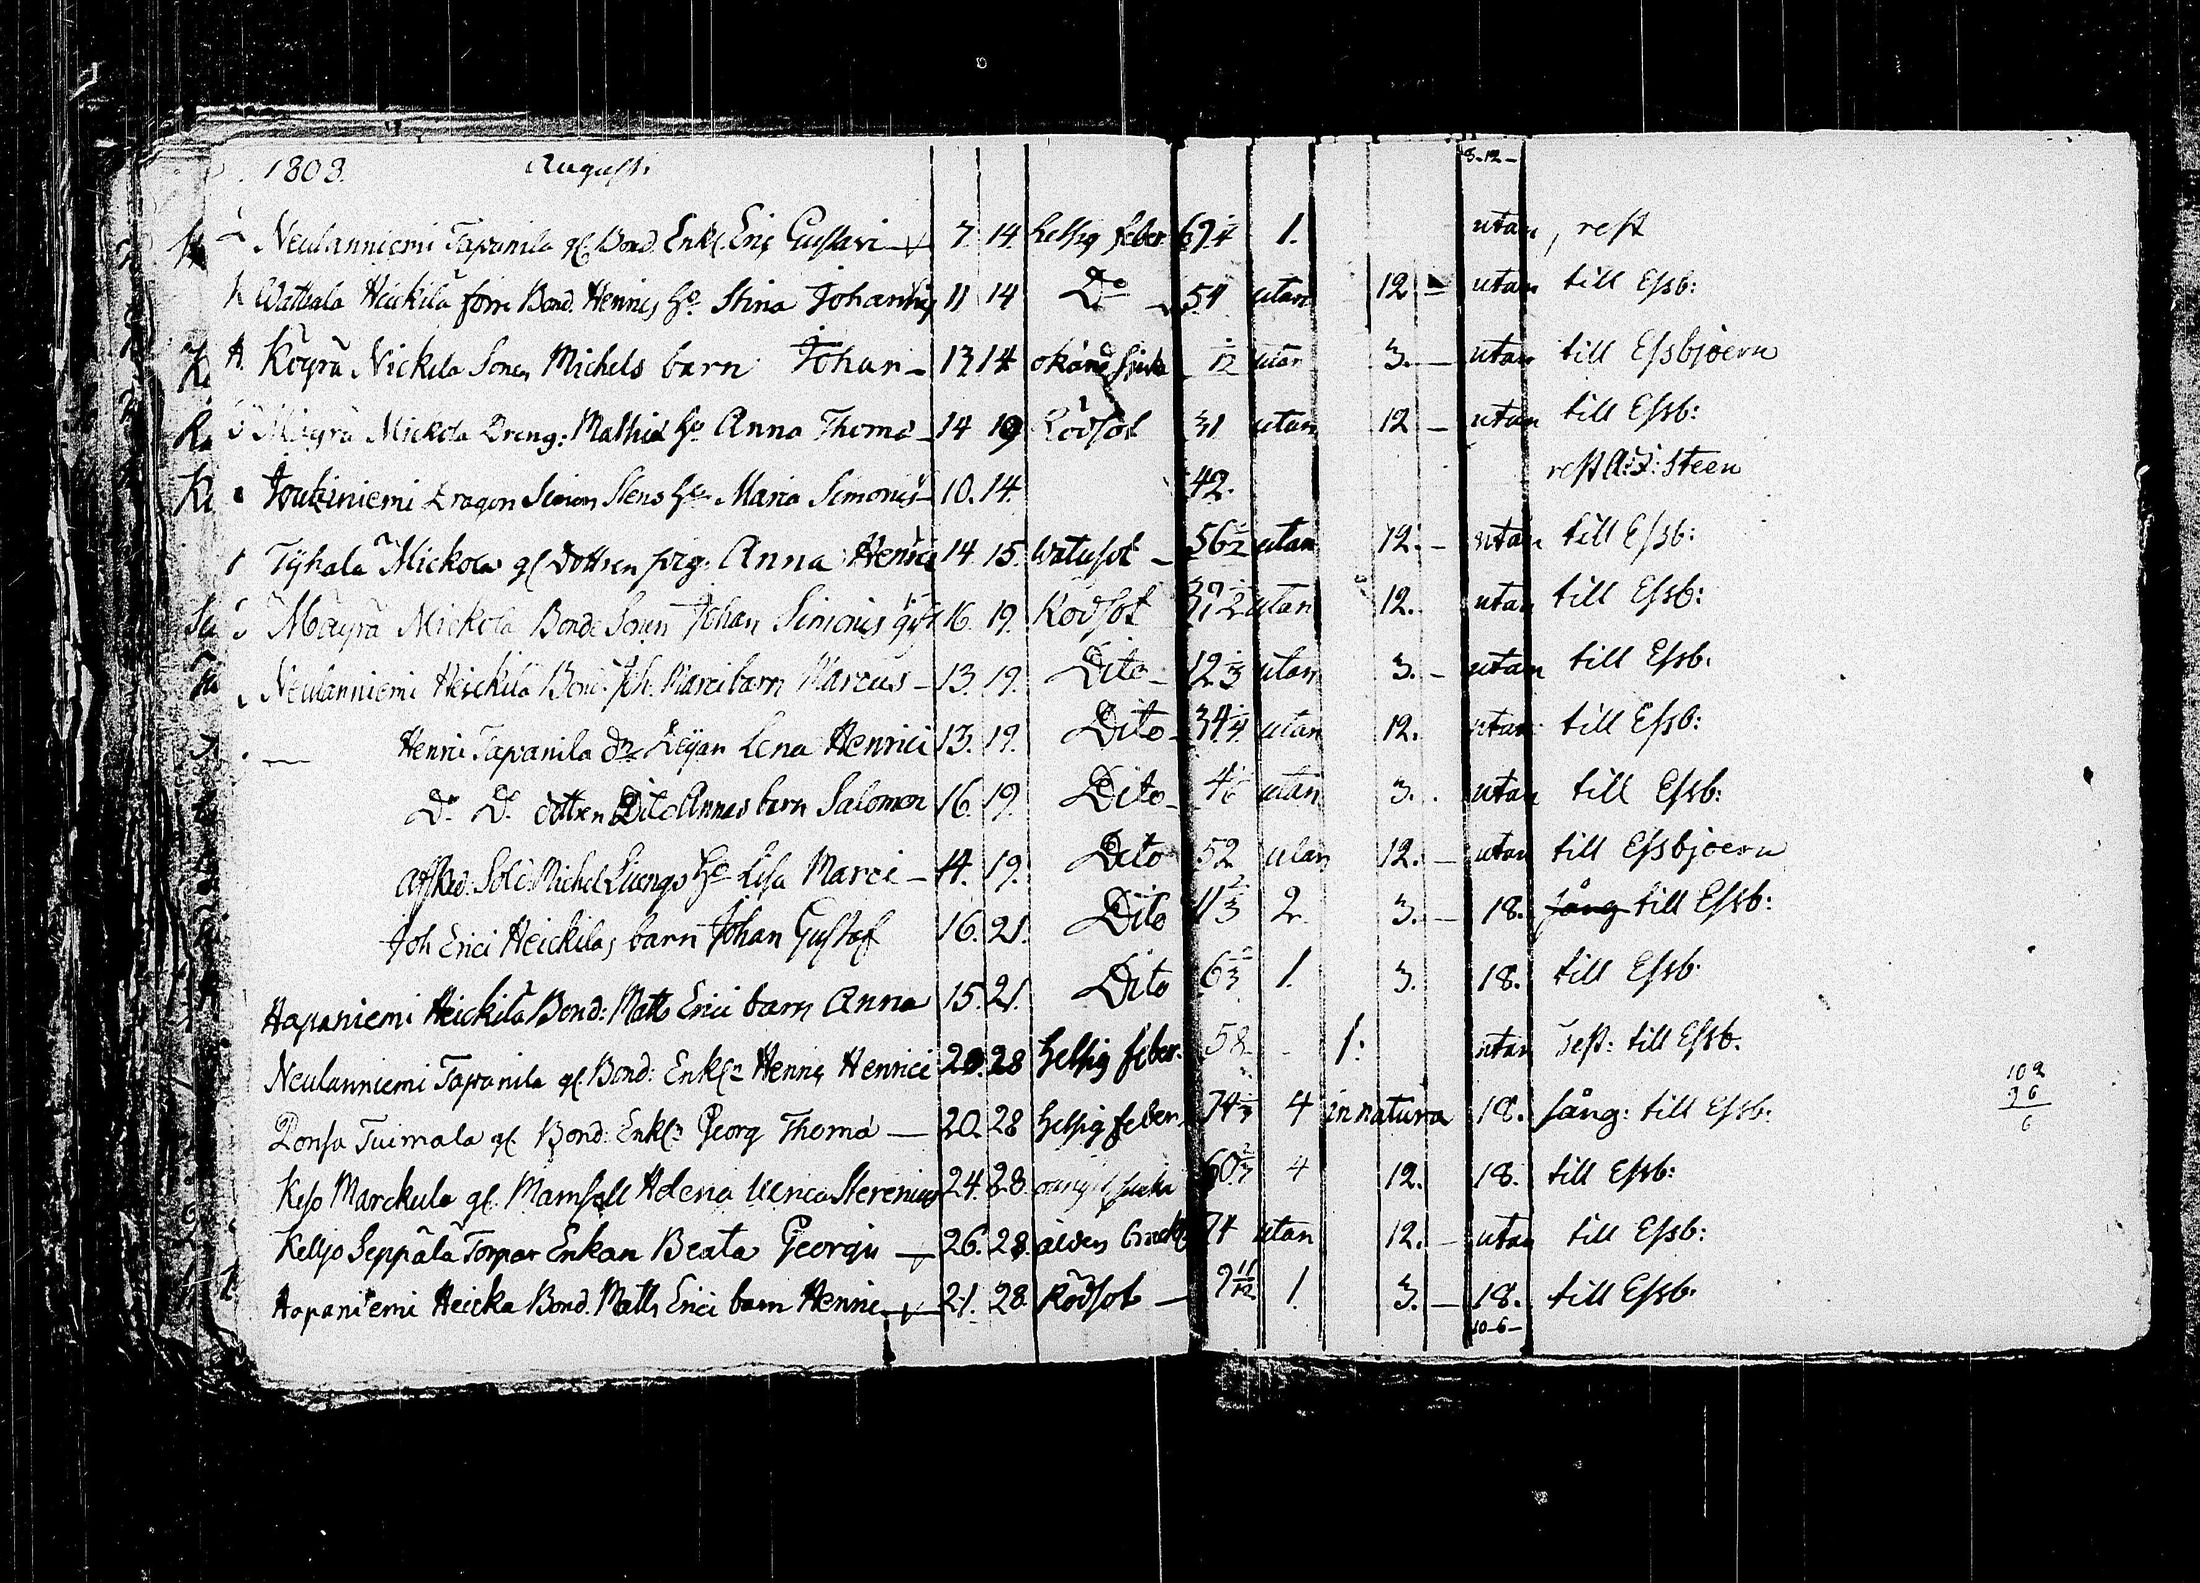 1803. Augusti 8-12-
Neulanniemi Tapanila gl. Bond. Enkl. Eric Gustavi 7. 14. hetsig feber 69 1/4 1. utan, rest
Wattiala Heickilä förre Bond. Henrics h:o Stina Johan 11 14 D:o 54 utan 12 utan till Essb:
Köyrä Nickila Sones Michels barn Johan - 13 14 okänd 1/12 utan 3. - utan till Essbjoern
Mäyrä Mickola Dreng: Mathis h:o Anna Thomæ - 14 19 Rödsot 31 utan 12 - utan till Essb:
Joukiniemi Dragon Simon Stens h:o Maria Simonis - 10. 14. 42. rest A:J: Steen
Tÿhälä Mickola gl dottren pig. Anna Henrici 14. 15. Watusot - 56 1/2 utan 12. - utan till Essb:
Mäyrä Mickola Bonde Sonen Johan Simonis 16. 19. Rödsot 37 1/2 utan 12. utan till Essb:
Neulanniemi Heickilä Bond. Joh. Marci barn Marcus - 13. 19. Dito - 12 1/3 utan 3. - utan till Essb.
Henric Tapanila Lejan Lena Henrici 13. 19. Dito - 34 1/4 utan 12. utan till Essb:
D:o D:o dottren Dito Annas barn Salomon 16. 19. Dito - utan 3. utan till Essb:
Afsked. Sold: Michel Liengs h:o Lisa Marci - 14. 19. Dito 52 utan 12. - utan till Essbjoern
Joh Erici Heickilas barn Johan Gustaf 16. 21. Dito 11 2/3 2 3. - 18. sång till Essb:
Hapaniemi Heickilä Bond: Matts Erici barn Anna 15. 21. Dito 6 2/3 1. 3. 18. till Essb.
Neulanniemi Tapanila gl. Bond: Enkl:n Henric Henrici 20. 28 hetsig feber. 58 - 1. utan Test: till Essb.
Tuimala gl. Bond: Enkl:n Georg Thomæ - 20. 28 hetsig feber. 74 1/3 4 in natura 18. sång: till Essb. 102
96
6
Keso Marckula gl. Mamsell Helena Ulrica Sterenius 24. 28. 60 2/3 4 12. 18. till Essb:
Keljo Seppälä Torpar Enkan Beata Georgii - 26. 28. ålders bräckl. 74 utan 12. - utan till Essb:
Hapaniemi Heicka Bond. Matts Erici barn Henric - 21. 28 Rödsot - 9 11/12 1. 3. - 18. till Essb.
10-6-